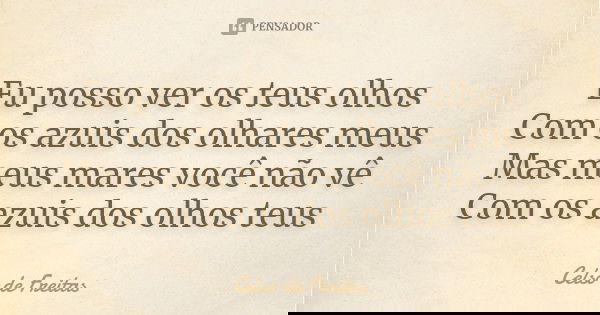 PENSADOR
Eu posso ver os teus olhos
Com os azuis dos olhares meus
Mas meus mares você não vê
Com os azuis dos olhos teus
Celso de Freitas